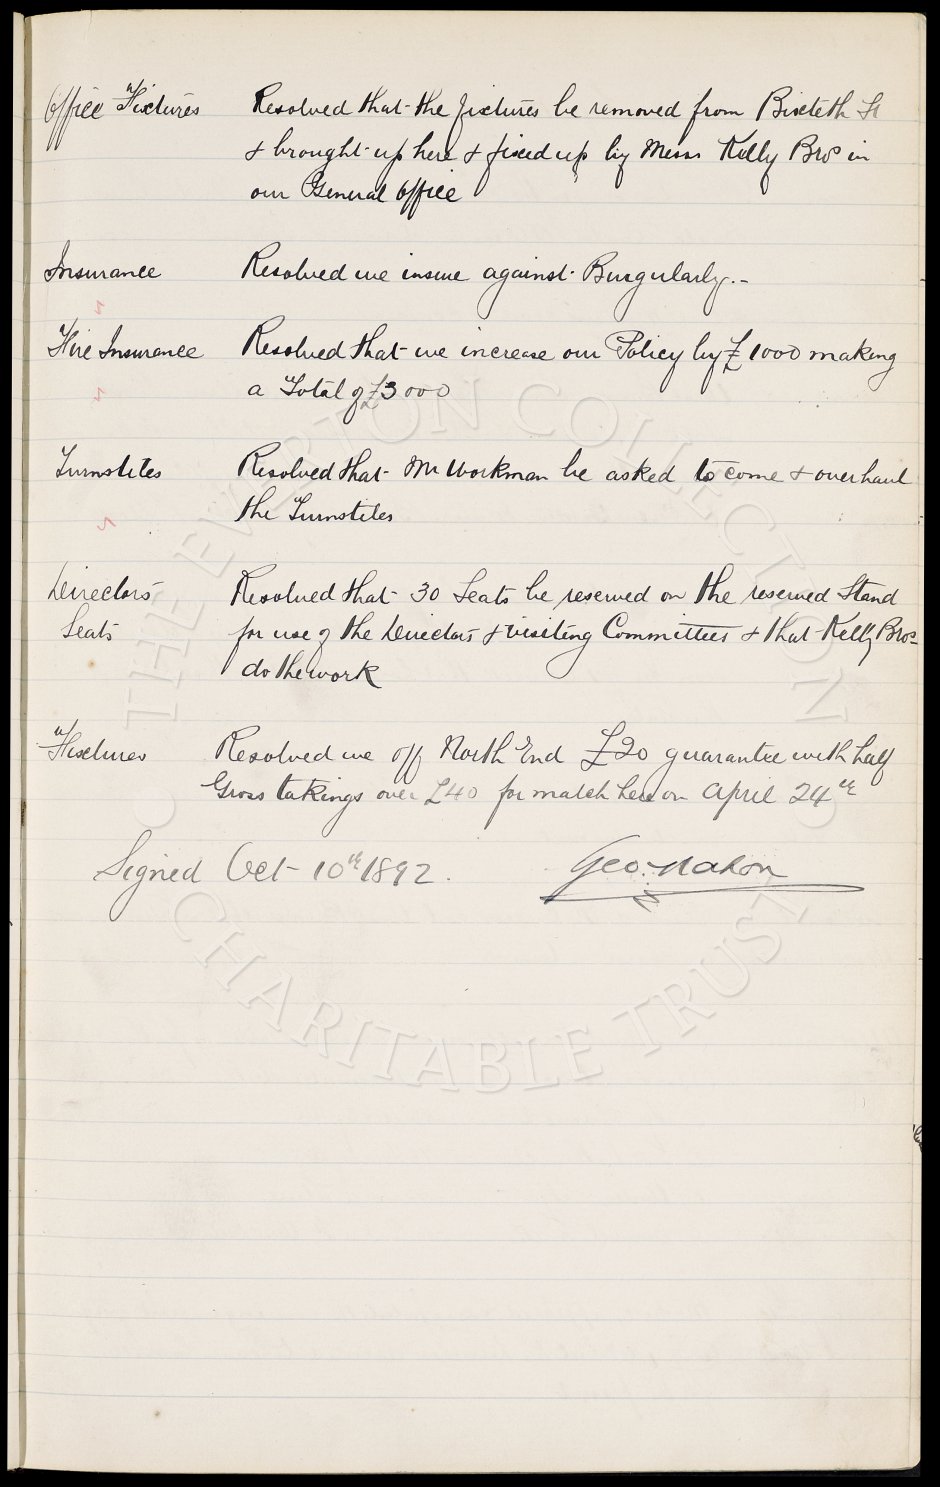 Office Fixtures Resolved that the fixtures be removed from Bixteth St
& brought up here & fixed up by Messrs Kelly Bros in
our General Office
Insurance Resolved we insure against Burgularly.-
Fire Insurance Resolved that we increase our Policy by £1000 making
a Total of £3000
Turnstiles Resolved that Mr Workman be asked to come & overhaul
the Turnstiles
Directors Resolved that 30 Seats be reserved on the reserved Stand
Seats for use of the Directors & visiting Committees & that Kelly Bros
do the work
Fixtures Resolved we off North End £20 guarantee with half
Gross takings over £40 for match here on April 24th
Signed Oct 10th 1892. Geo. Mahon
© THE EVERTON COLLECTION
CHARITABLE TRUST